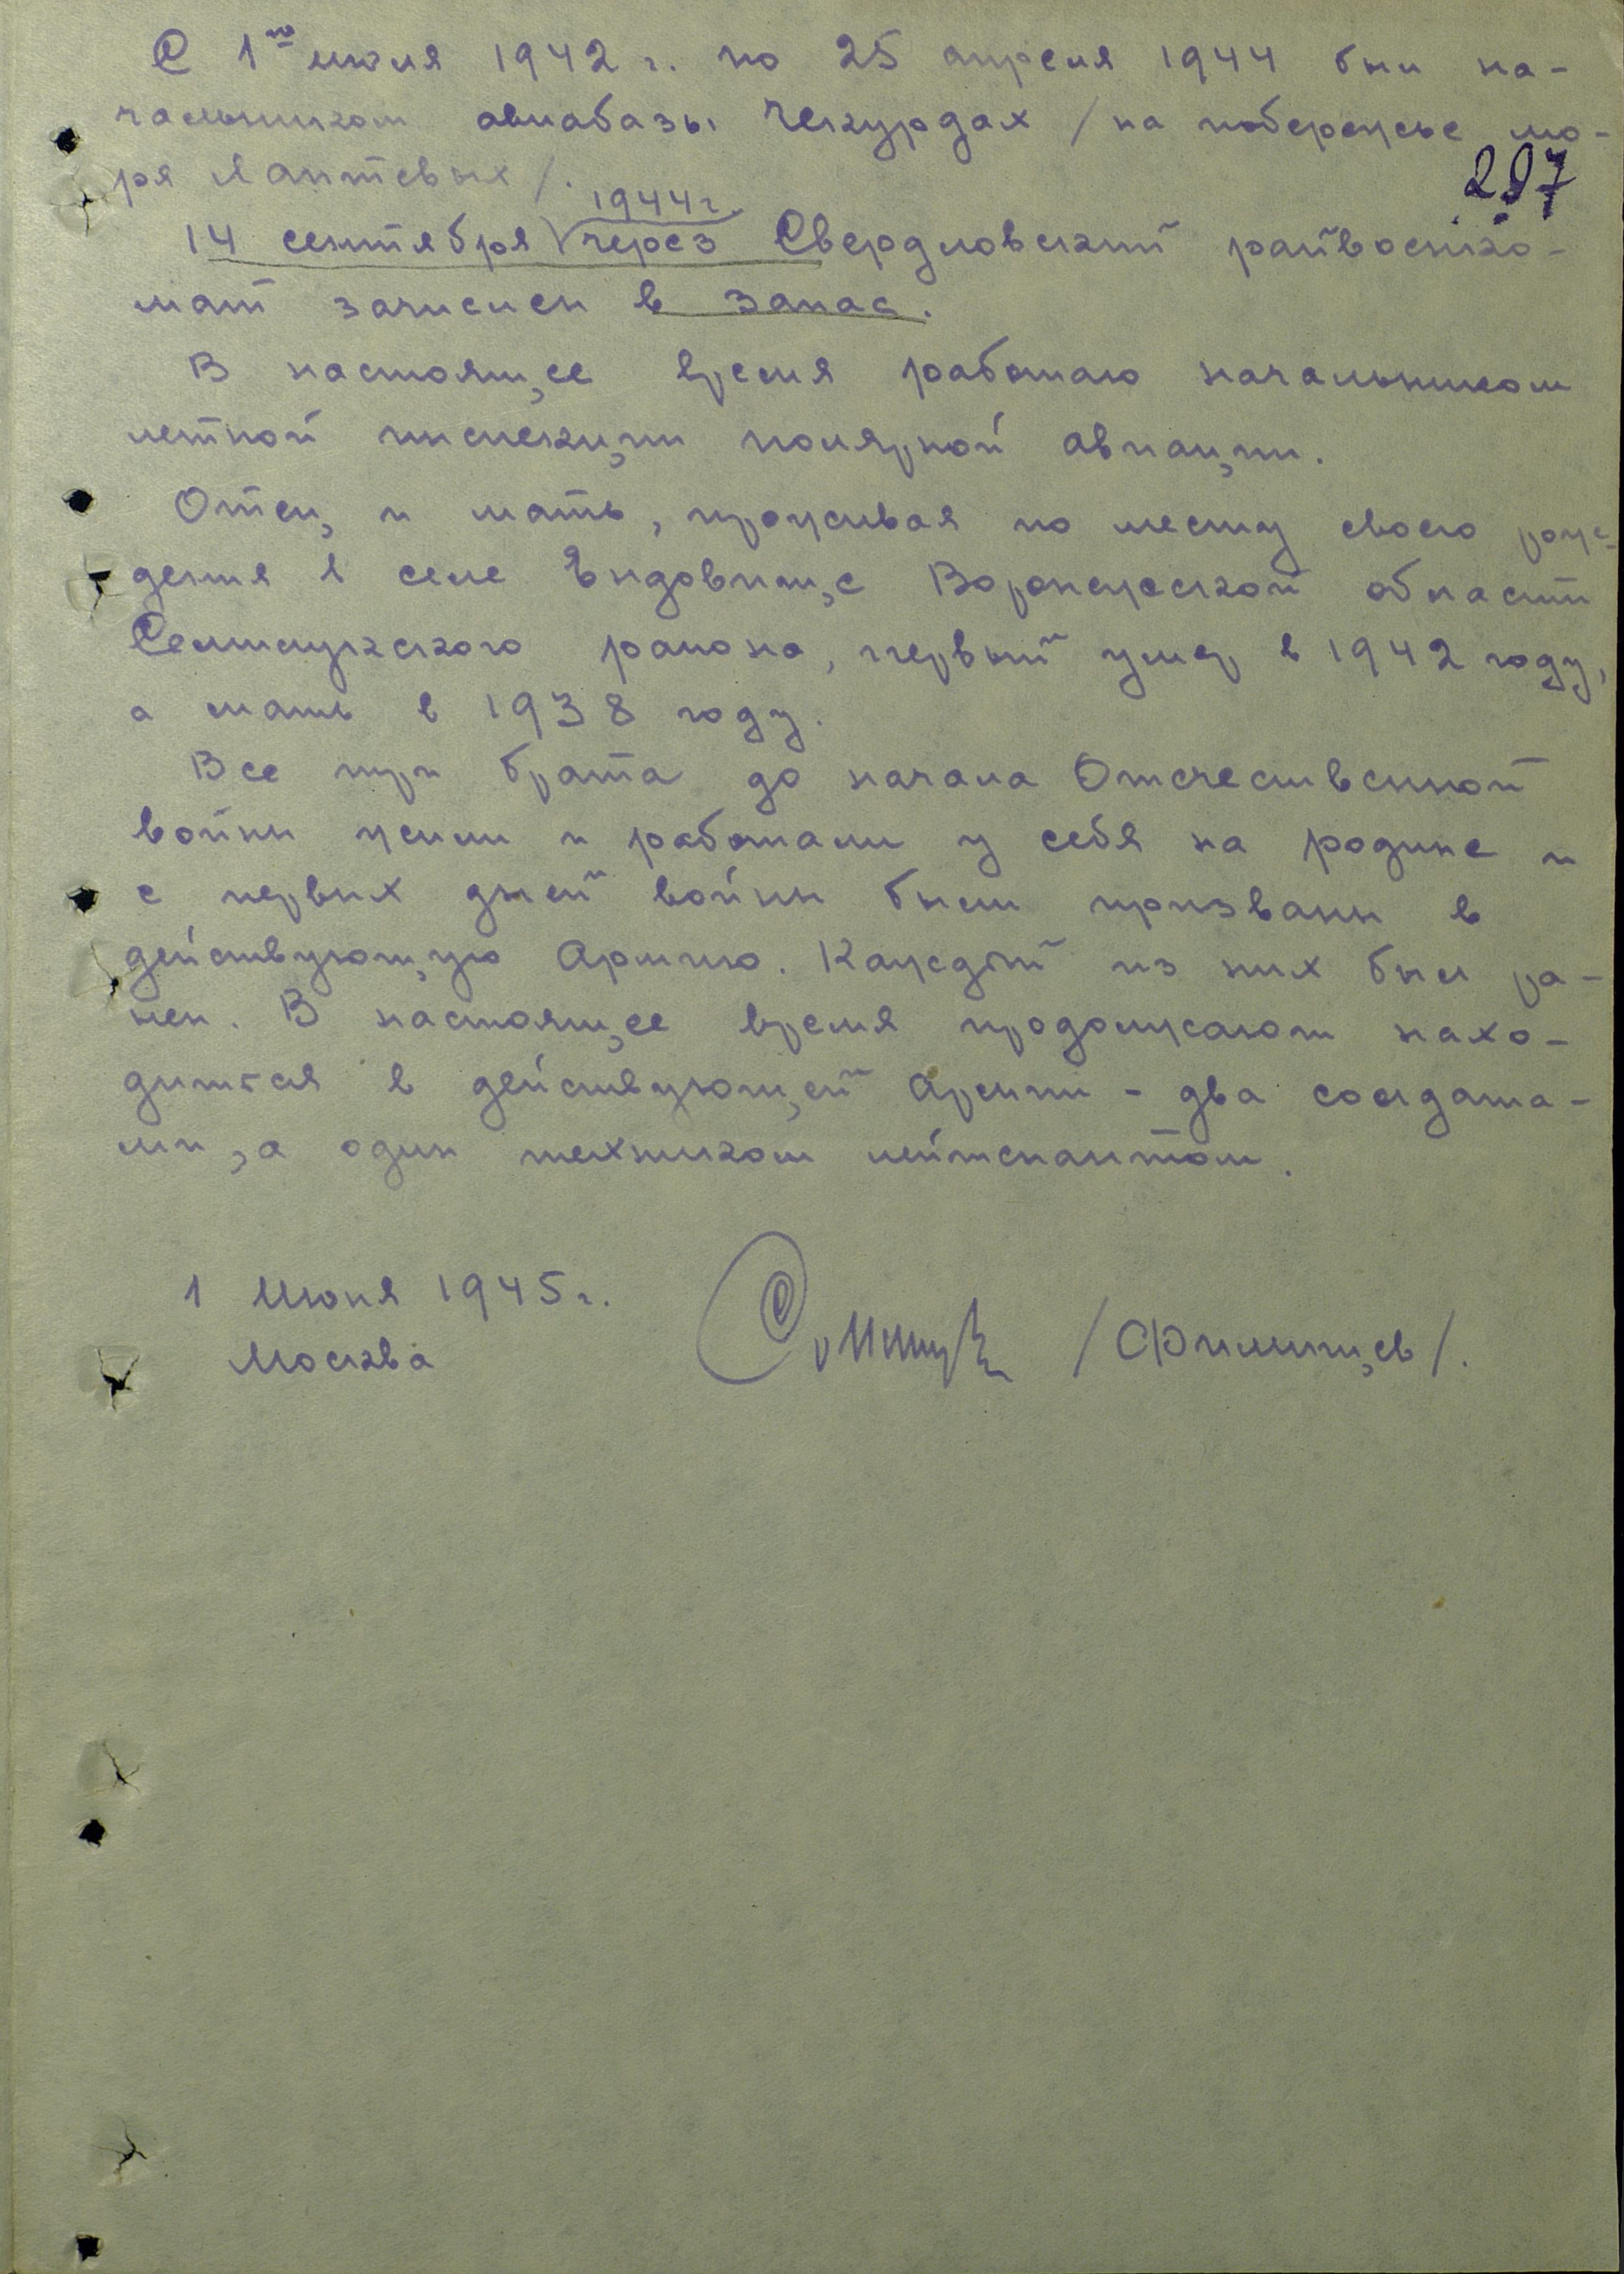 С 1го июля 1942 г. по 25 апреля 1944 был на-
чальником авиабазы Чекурдах /на побережье мо-
ря Лаптевых/.
297
1944 г.
14 сентября через Свердловский райвоенко-
мат зачислен в запас.
В настоящее время работаю начальником
летной инспекции полярной авиации.
Отец и мать, проживая по месту своего рож-
дения в селе Ендовище Воронежской области
Семилукского района, первый умер в 1942 году,
а мать в 1938 году.
Все три брата до начала Отечественной
войны жили и работали у себя на родине и
с первых дней войны были призваны в
действующую Армию. Каждый из них был ра-
нен. В настоящее время продолжают нахо-
дится в действующей Армии - два солдата-
ми, а один техником лейтенантом.
1 Июня 1945 г.
/Филипцев/.
Москва